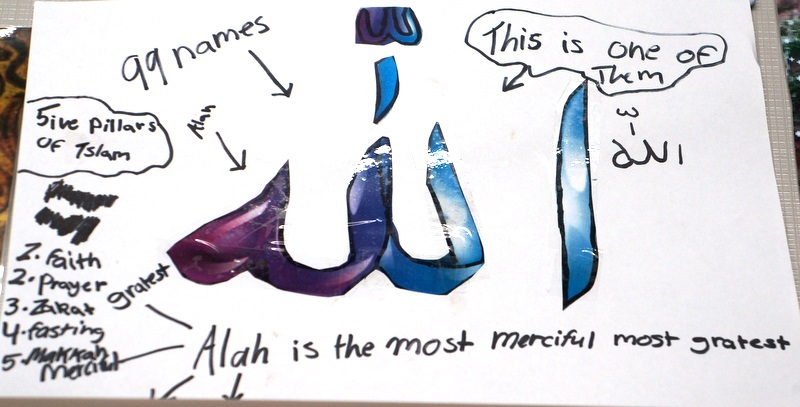 99 names
This is one of
Them
Alah
الله
الله
5ive Pillars
OF Islam
1. Faith
2. Prayer
3. Zakat
4. Fasting
5. Makkah
gratest
Merciful
Alah is the most merciful most gratest